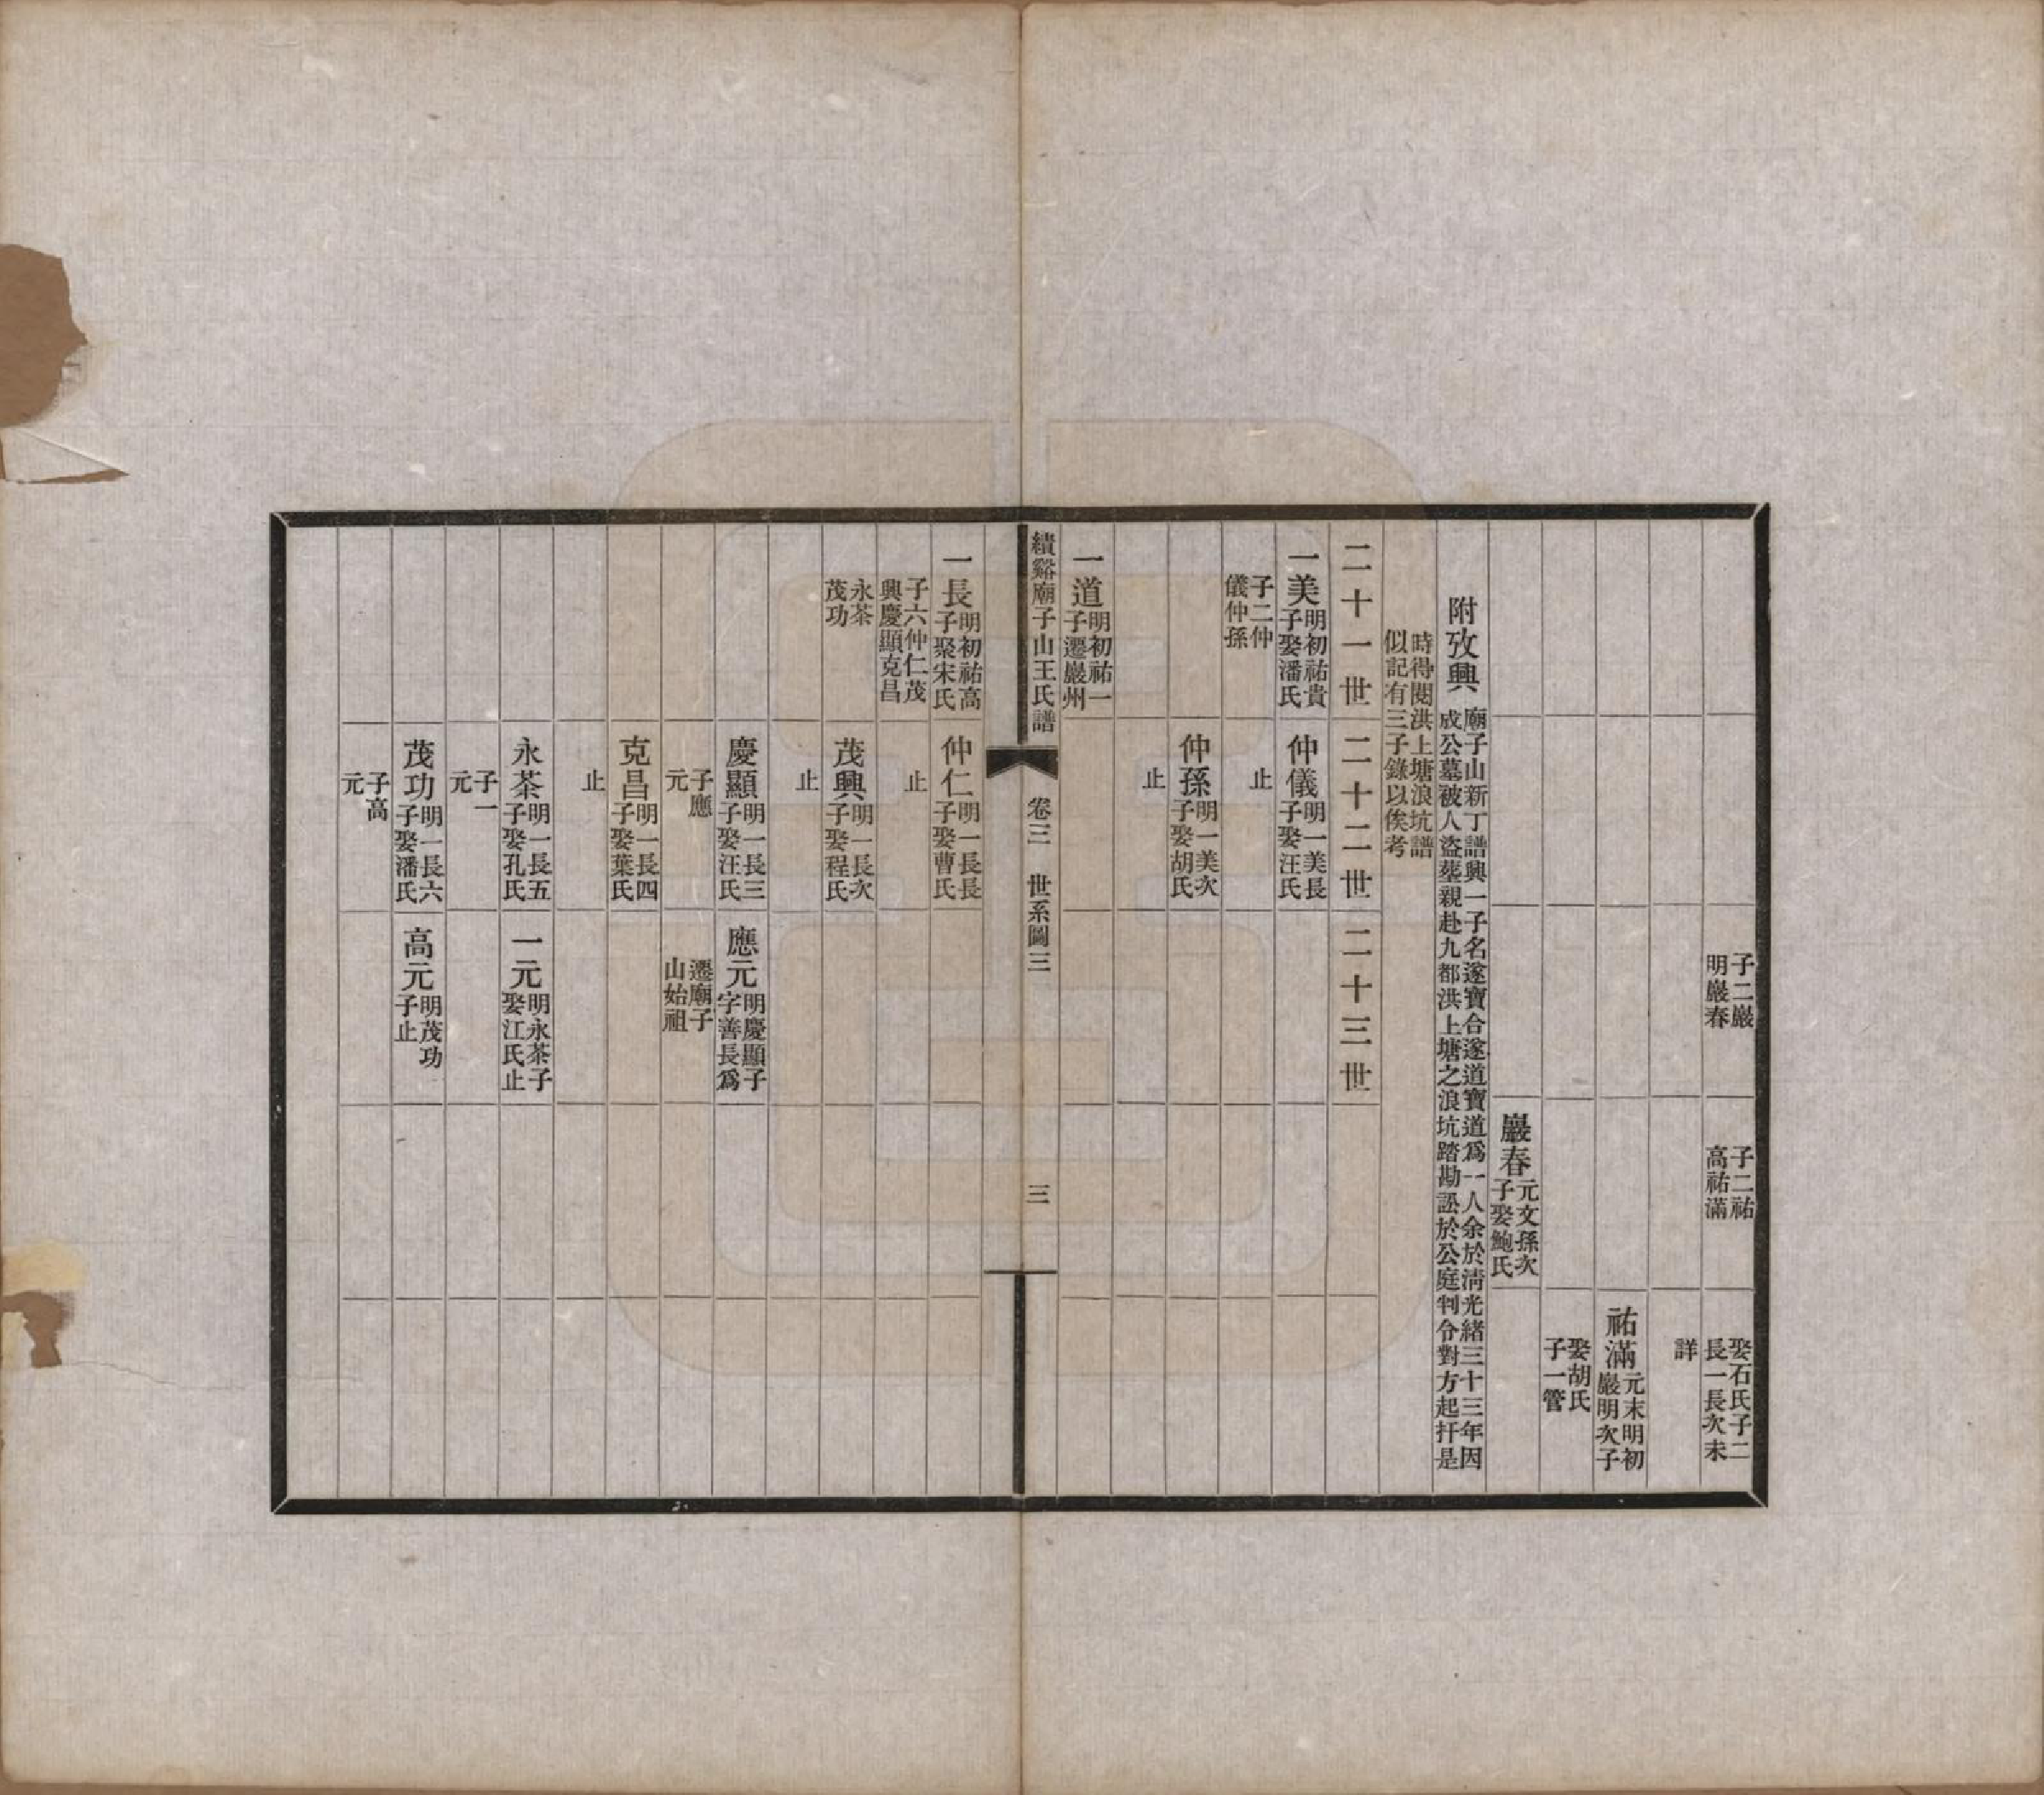 子二巖
明巖春
子二祐
高祐滿
娶石氏子二
長一長次未
詳
祐滿元末明初
巖明次子
娶胡氏
子一管
巖春元文孫次
子娶鮑氏
附攷興
廟子山新丁譜興一子名遂寶合遂道寶道爲一人余於清光緒三十三年因
成公墓被人盜塟親赴九都洪上塘之浪坑踏勘訟於公庭判令對方起扦是
時得閱洪上塘浪坑譜
似記有三子錄以俟考
二十一世
二十二世
二十三世
一美明初祐貴
子娶潘氏
仲儀明一美長
子娶汪氏
子二仲
儀仲孫
止
仲孫明一美次
子娶胡氏
止
一道明初祐一
子遷嚴州
績谿廟子山王氏譜
卷三
世系圖三
三
一長明初祐高
子聚宋氏
仲仁明一長長
子娶曹氏
子六仲仁茂
興慶顯克昌
止
永茶
茂功
茂興明一長次
子娶程氏
止
慶顯明一長三
子娶汪氏
應元明慶顯子
字善長爲
子應
元
遷廟子
山始祖
克昌明一長四
子娶葉氏
止
永茶明一長五
子娶孔氏
一元明永茶子
娶江氏止
子一
元
茂功明一長六
子娶潘氏
高元明茂功
子止
子高
元